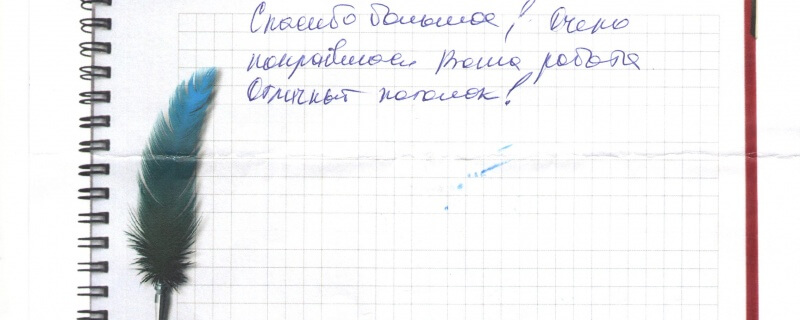 Спасибо большое! Очень
понравилась Ваша работа
Отличный потолок!